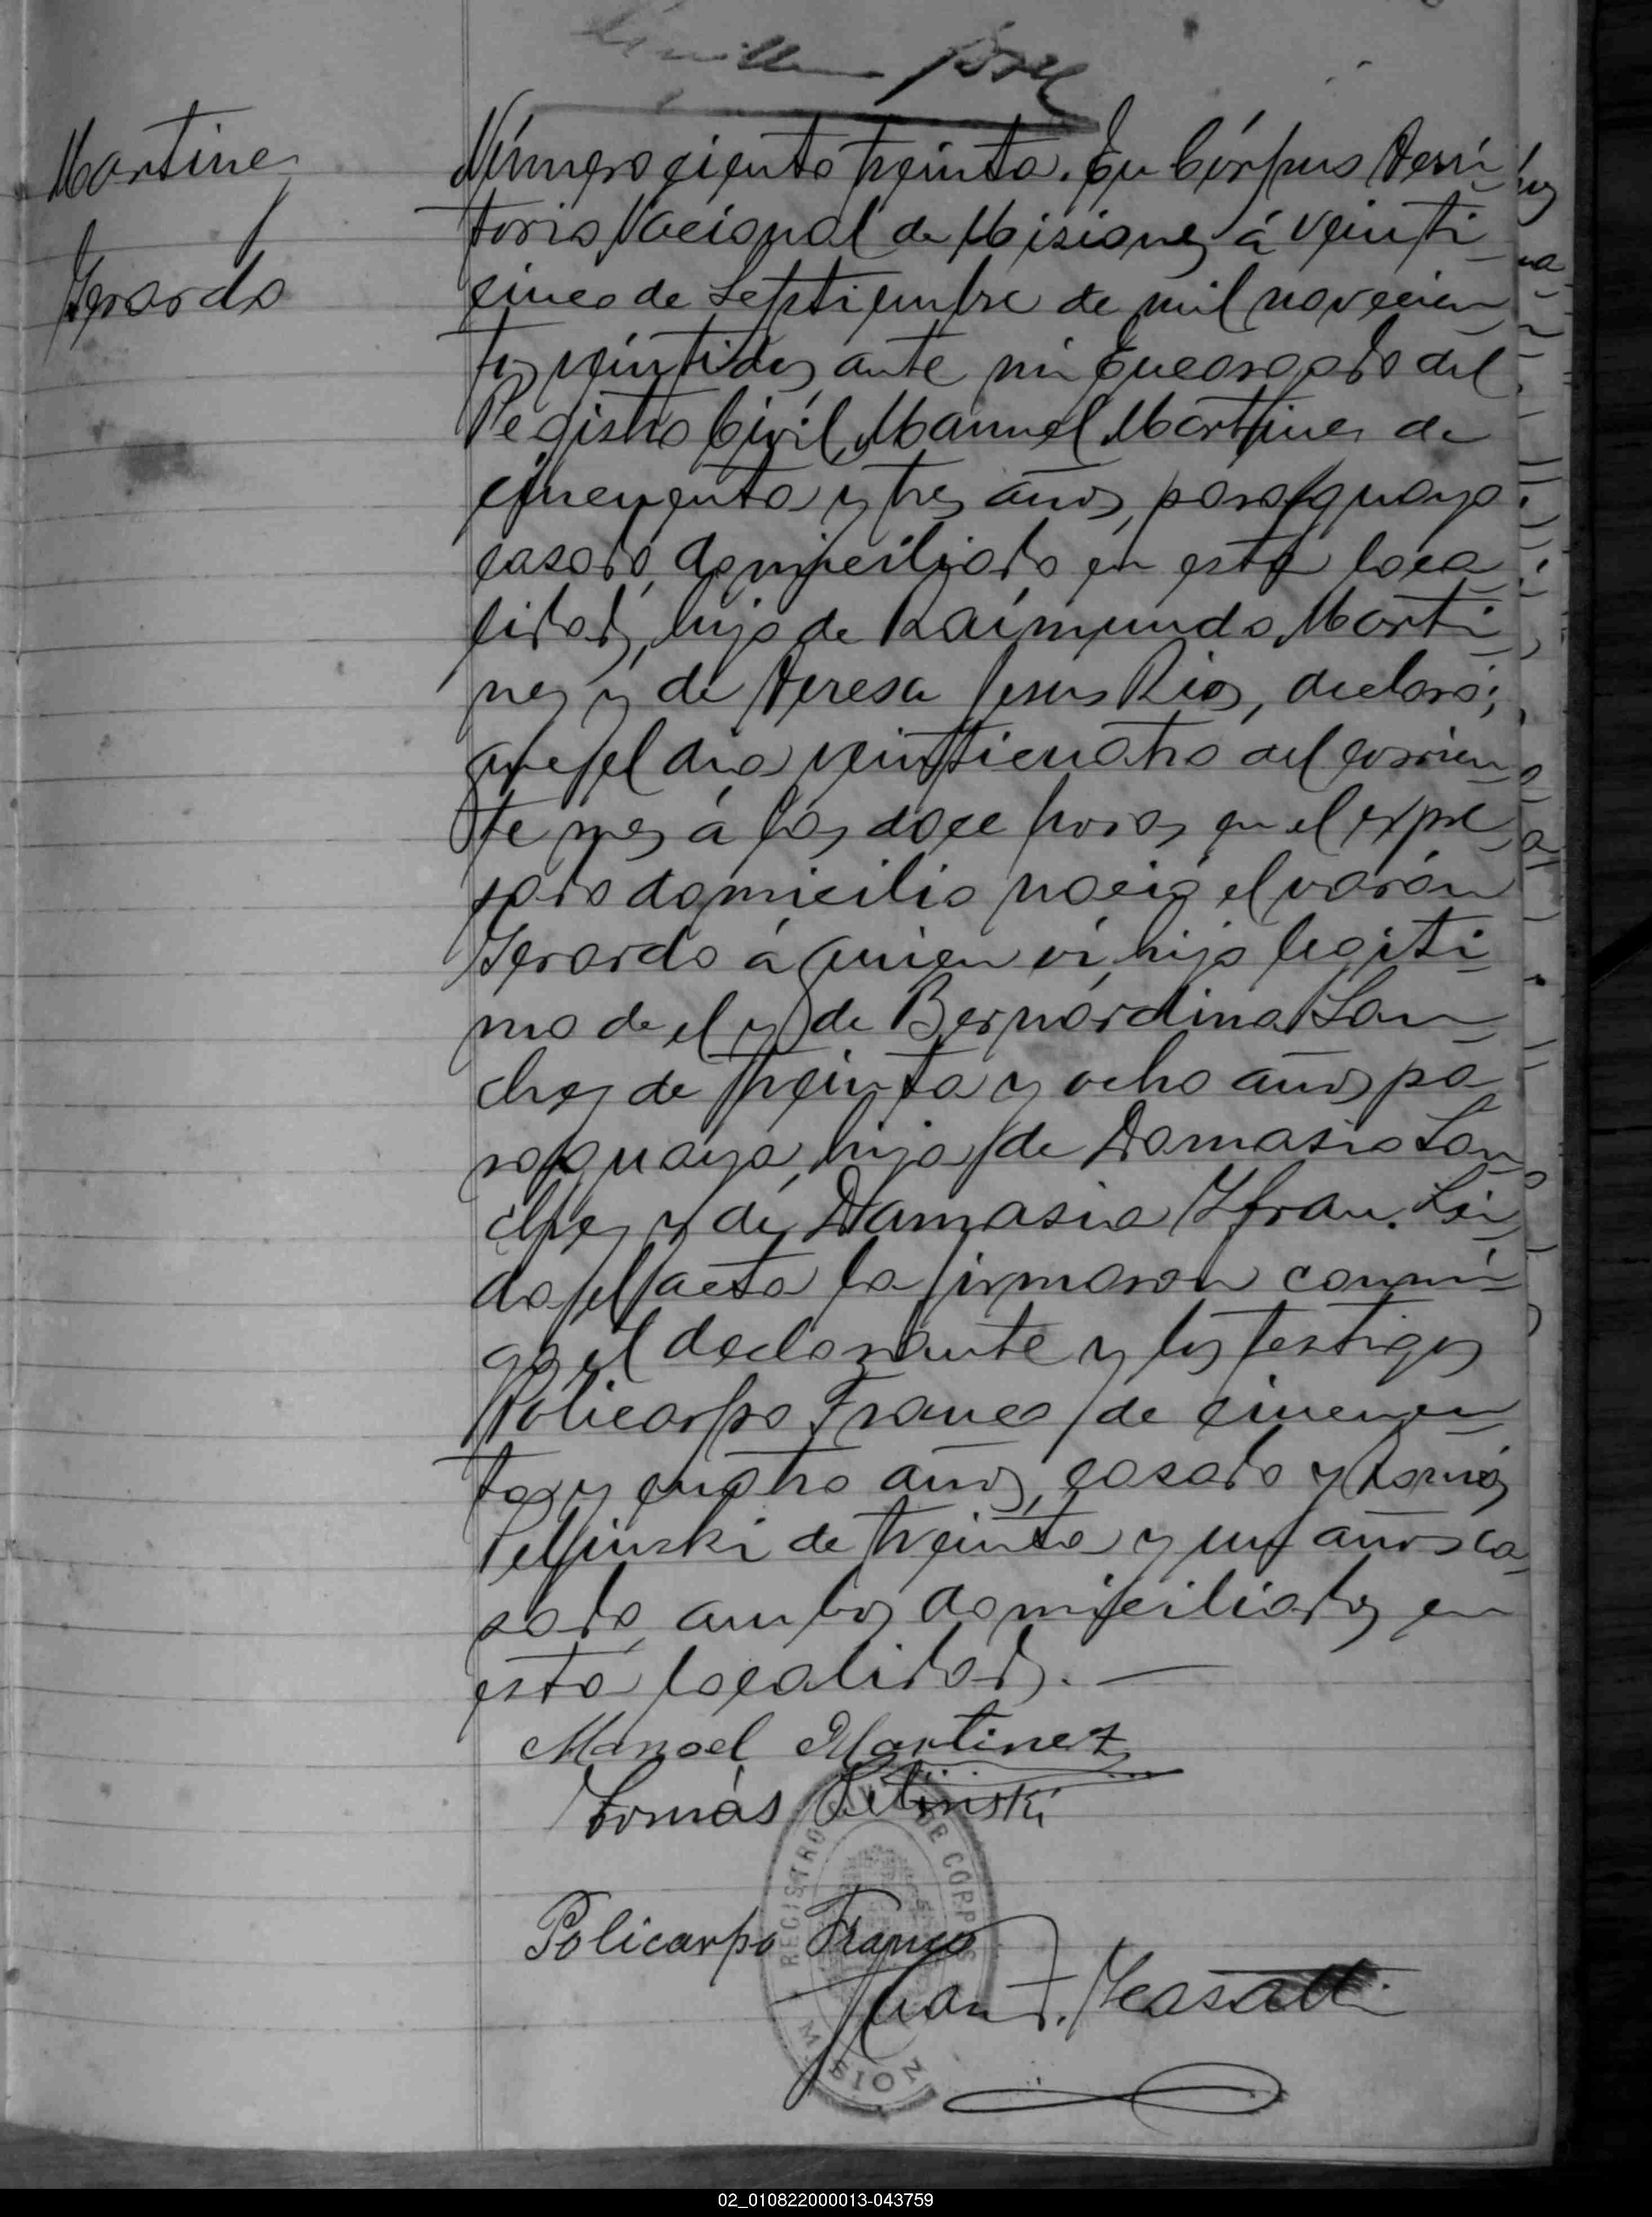 Martinez
Gerardo
Número ciento treinta. En Córpus Terri
torio Nacional de Misiones á veinti
cinco de Septiembre de mil novecien
tos veintidos, ante mi Encargado del
Registro Civil, Manuel Martinez de
cincuenta y tres años, paraguayo
casado, domiciliado en esta loca
lidad, hijo de Raimundo Marti
nez y de Teresa Jesus Rios, declaró;
que el dia veinticuatro del corrien
te mes á las doce horas en el expre
sado domicilio nació el varón
Gerardo á quien ví, hijo legiti
mo de el y de Bernardina San
chez de treinta y ocho años pa
raguaya, hija de Damasio San
chez y de Damasia Yfran. Lei
da el acta la firmaron conmi
go el declarante y los testigos
Policarpo Franco de cincuen
ta y cuatro años, casado y Tomás
Pelinski de treinta y un años ca
sado, ambos domiciliados en
esta localidad. —
Manoel Martinez
Tomás Pelinski
Policarpo Franco
Juan F.
REGISTRO CIVIL DE CORPUS
MISIONES
02_010822000013-043759